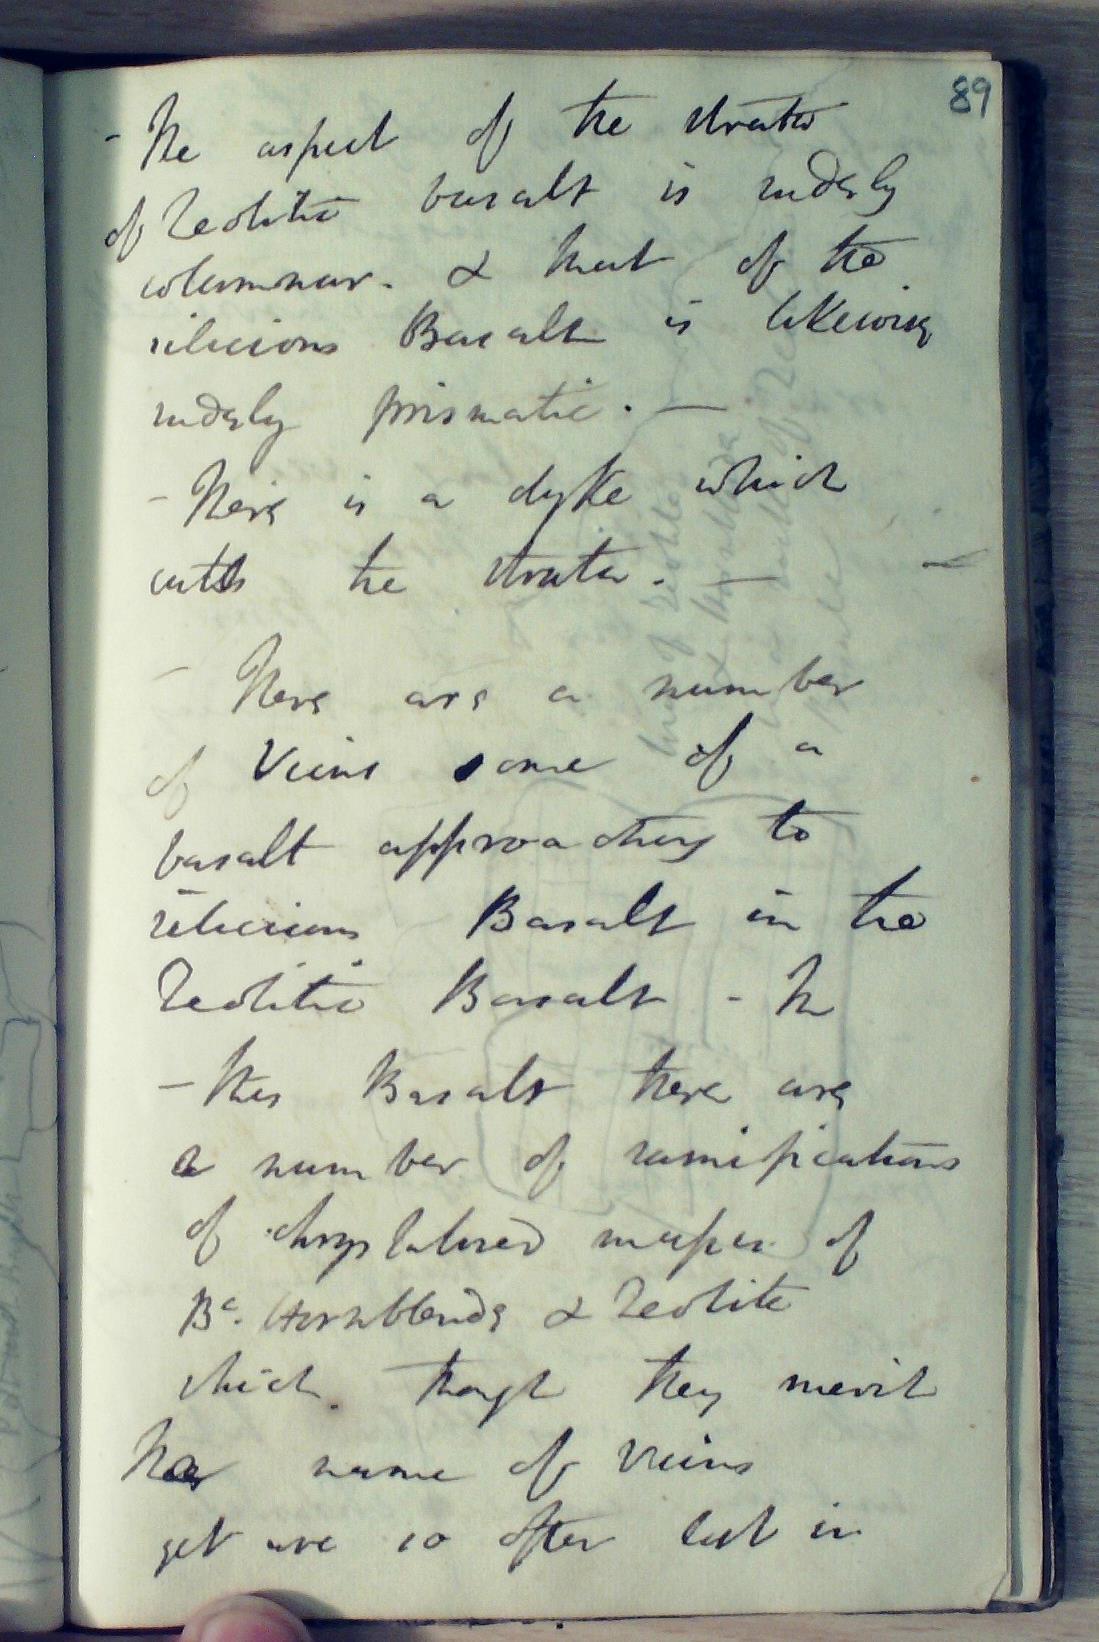 89
- The aspect of the strata
of Zeolitic basalt is rudely
columnar. & that of the
silicious Basalt is likewise
rudely prismatic. —
- There is a dyke which
cutts the strata. —
- There are a number
of Veins some of a
basalt approaching to
silicious Basalt in the
Zeolitic Basalt - In
- this Basalt there are
a number of ramifications
of chrystalised masses of
Bc. Hornblende & Zeolite
which though they merit
the name of Veins
yet are so often lost in